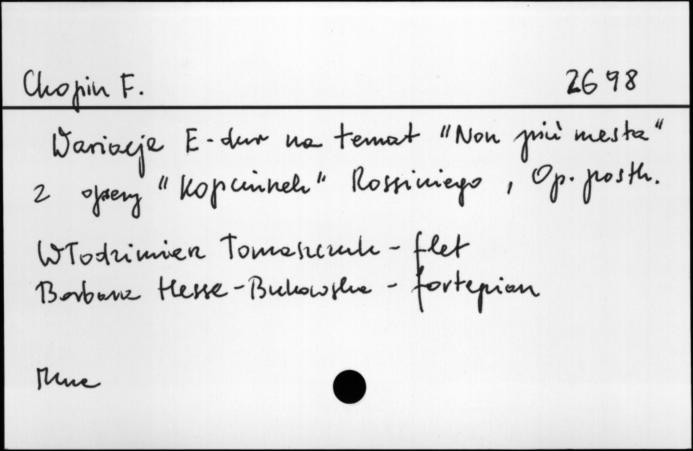 Chopin F. 2698
Wariacje E-dur na temat "Non più mesta"
z opery "Kopciuszek" Rossiniego, Op. posth.
Włodzimierz Tomaszczuk - flet
Barbara Hesse-Bukowska - fortepian